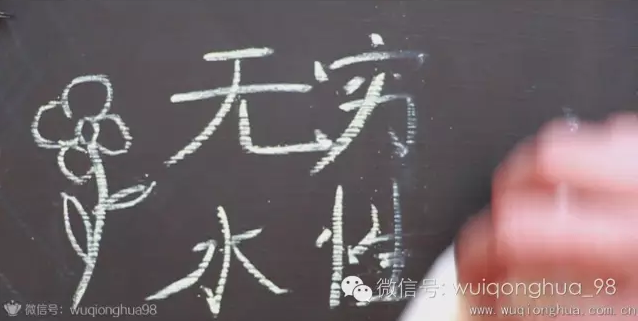 无穷
水
微信号: wuiqonghua_98
微信号: wuqionghua98
www.wuqionghua.com.cn